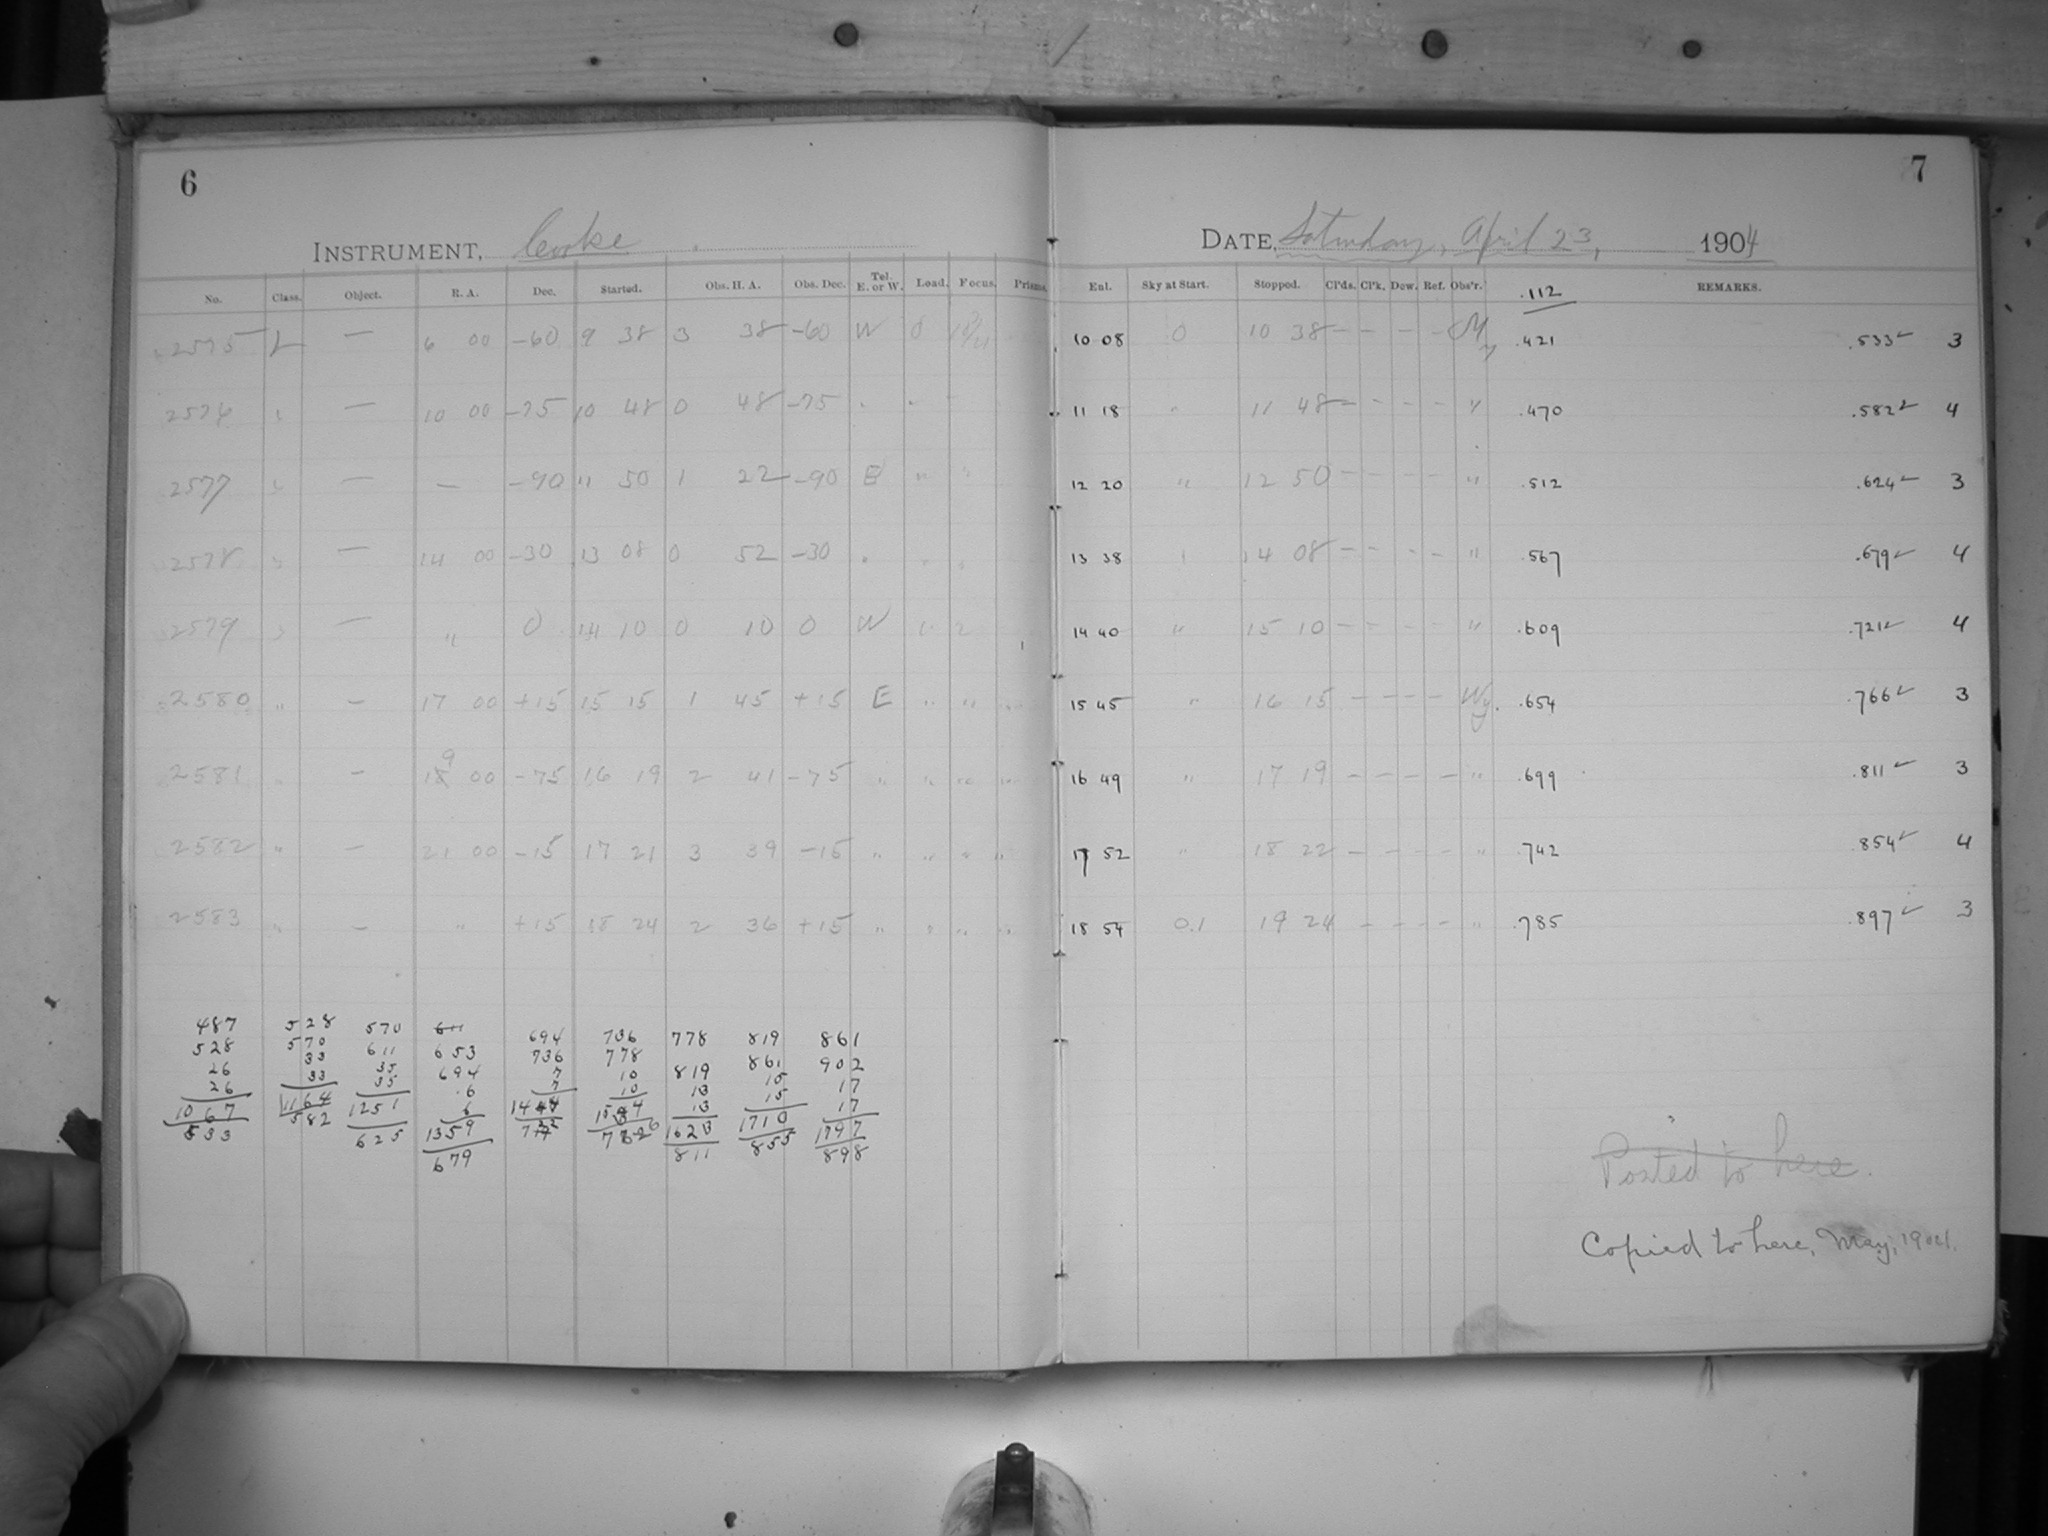 6
7
INSTRUMENT, Cooke
DATE, Saturday, April 23, 1904
No. Class. Object. R. A. Dec. Started. Obs. H. A. Obs. Dec. Tel. E. or W. Load. Focus. Prisms.
Ent. Sky at Start. Stopped. Cl'ds. Cl'k. Dew. Ref. Obs'r. .112 REMARKS.
2575 L — 6 00 -60 9 38 3 38 -60 W 0
10 08 0 10 38 — — — — My .421 .533 ✓ 3
2576 " — 10 00 -75 10 48 0 48 -75 " " "
11 18 " 11 48 — — — — " .470 .582 ✓ 4
2577 " — — -90 11 50 1 22 -90 E " "
12 20 " 12 50 — — — — " .512 .624 ✓ 3
2578 " — 14 00 -30 13 08 0 52 -30 " " "
13 38 " 14 08 — — — — " .567 .679 ✓ 4
2579 " — " 0 14 10 0 10 0 W " "
14 40 " 15 10 — — — — " .609 .721 ✓ 4
2580 " — 17 00 +15 15 15 1 45 +15 E " " "
15 45 " 16 15 — — — — Wy. .654 .766 ✓ 3
2581 " — 19 00 -75 16 19 2 41 -75 " " " "
16 49 " 17 19 — — — — " .699 .811 ✓ 3
2582 " — 21 00 -15 17 21 3 39 -15 " " " "
17 52 " 18 22 — — — — " .742 .854 ✓ 4
2583 " — " +15 18 24 2 36 +15 " " " "
18 54 0.1 19 24 — — — — " .785 .897 ✓ 3
487 528 570 611 694 736 778 819 861
528 570 611 653 736 778 819 861 902
26 33 35 694 7 10 13 15 17
26 33 35 .6 7 10 13 15 17
1067 1164 1251 6 1623 1710 1797
533 582 625 1359 811 855 898
679
Posted to here.
Copied to here, May, 1904.